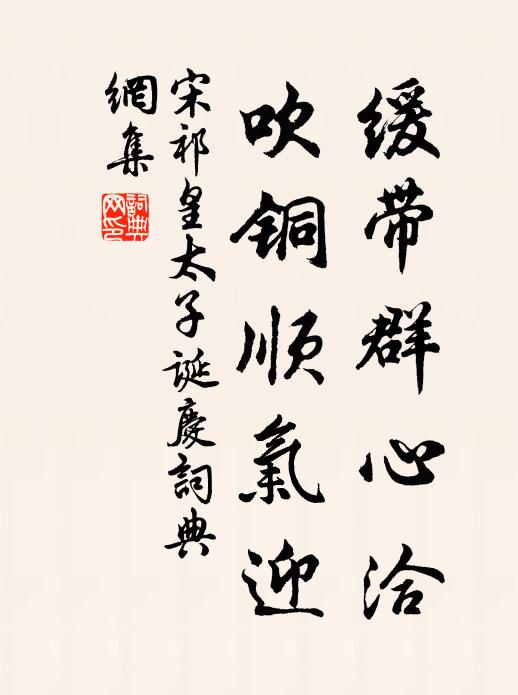 缓带群心洽
吹铜顺氣迎
宋祁皇太子诞慶詞典
網集
詞典
网印